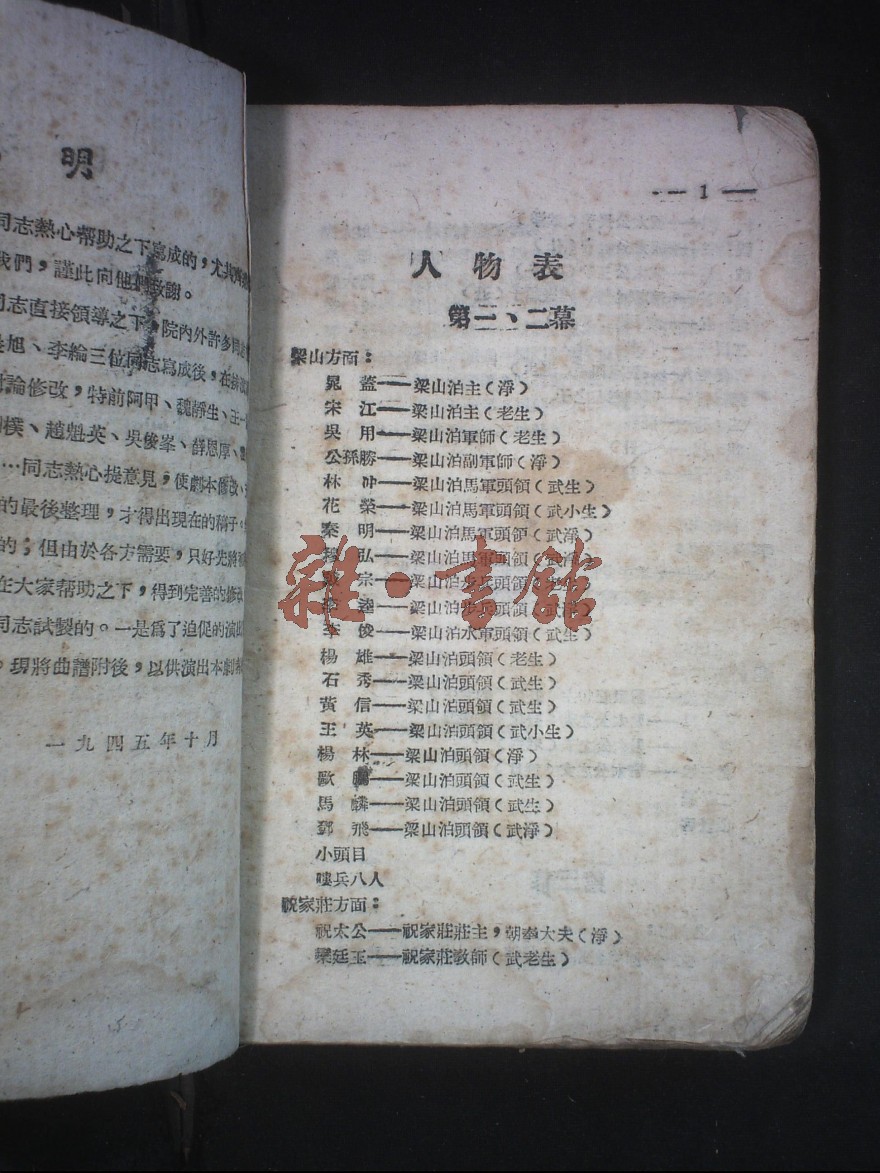 明
同志熱心帮助之下寫成的，尤其
我們，謹此向他們致謝。
同志直接領導之下，院內外許多同
旭、李綸三位同志寫成後，在
討論修改，特前阿甲、魏靜生、王一
樸、趙魁英、吳俊峯、薛恩厚、
…同志熱心提意見，使劇本修改、
的最後整理，才得出現在的稿子。
的；但由於各方需要，只好先將
在大家帮助之下，得到完善的修改
同志試製的。一是爲了迫促的演出
。現將曲譜附後，以供演出本劇
一九四五年十月
— 1 —
人物表
第一、二幕
梁山方面：
晁蓋——梁山泊主（淨）
宋江——梁山泊主（老生）
吳用——梁山泊軍師（老生）
公孫勝——梁山泊副軍師（淨）
林冲——梁山泊馬軍頭領（武生）
花榮——梁山泊馬軍頭領（武小生）
秦明——梁山泊馬軍頭領（武淨）
穆弘——梁山泊馬軍頭領（武淨）
宗——梁山泊步兵頭領（武生）
李逵——梁山泊步兵頭領（武淨）
李俊——梁山泊水軍頭領（武生）
楊雄——梁山泊頭領（老生）
石秀——梁山泊頭領（武生）
黃信——梁山泊頭領（武生）
王英——梁山泊頭領（武小生）
楊林——梁山泊頭領（淨）
歐鵬——梁山泊頭領（武生）
馬麟——梁山泊頭領（武生）
鄧飛——梁山泊頭領（武淨）
小頭目
嘍兵八人
祝家莊方面：
祝太公——祝家莊莊主，朝奉大夫（淨）
欒廷玉——祝家莊教師（武老生）
雜·書館